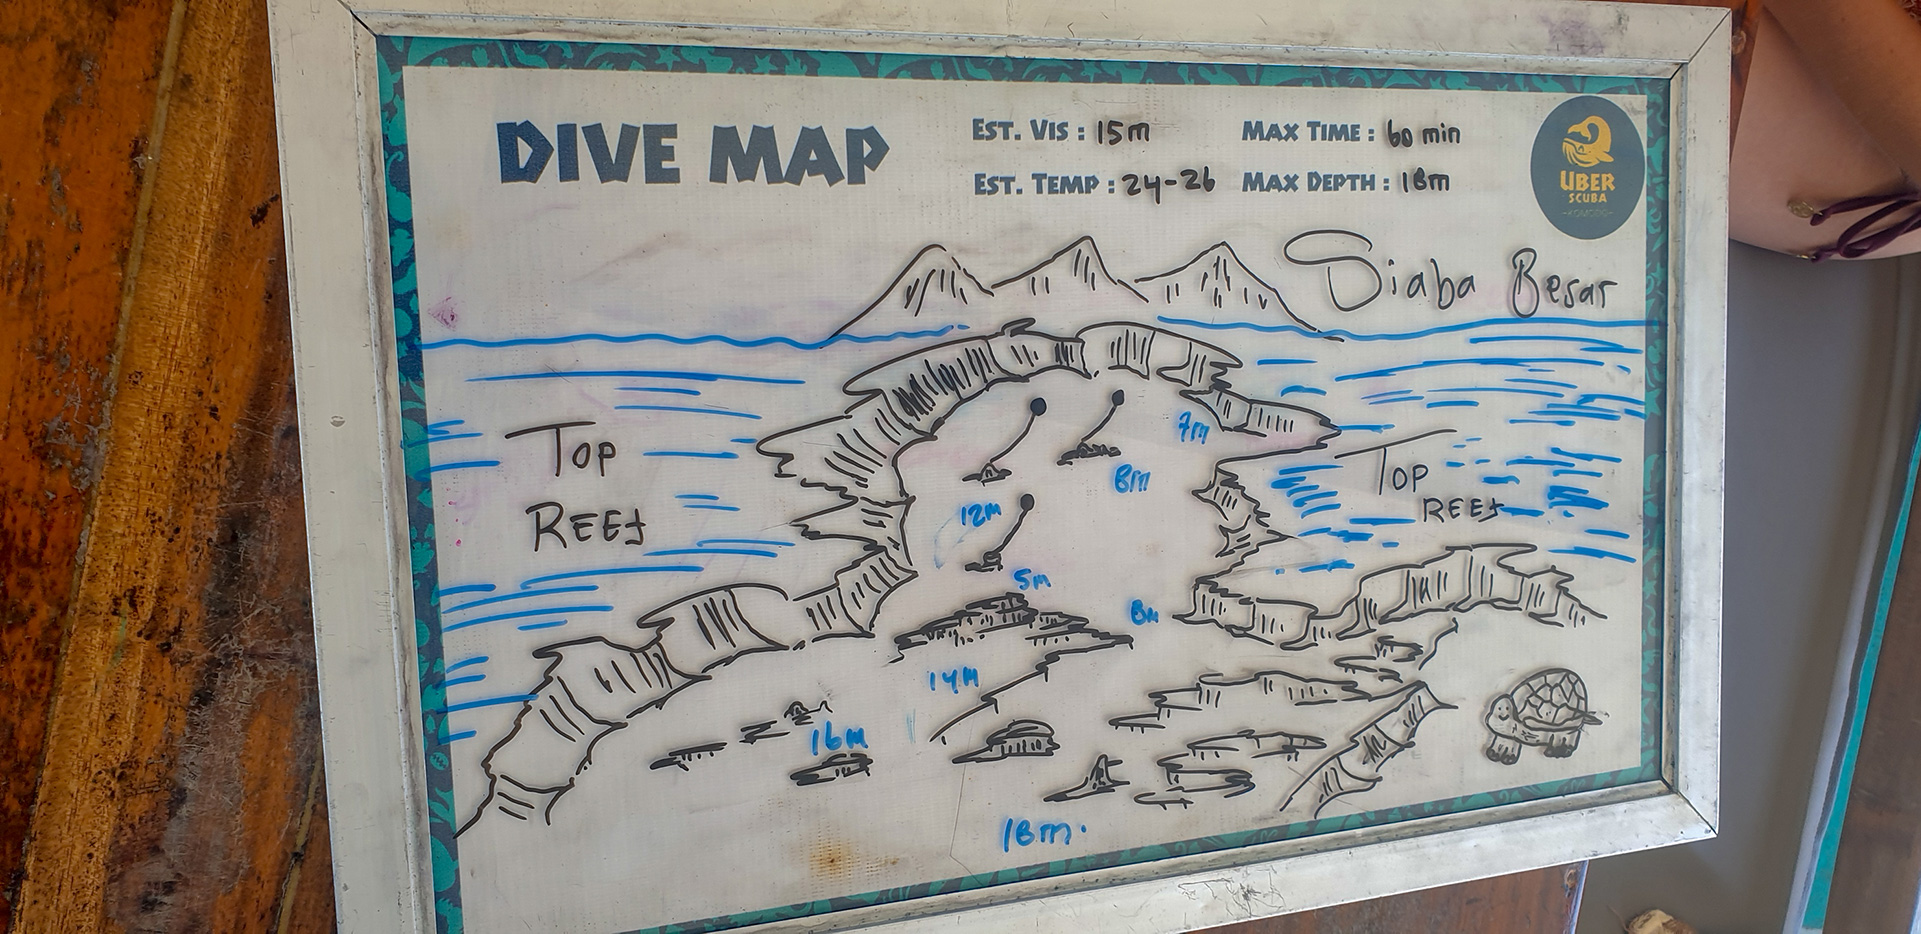 DIVE MAP
EST. VIS : 15m
MAX TIME : 60 min
EST. TEMP : 24-26
MAX DEPTH : 18m
UBER
SCUBA
-KOMODO-
Siaba Besar
TOP
REEf
TOP
REEf
7m
8m
12m
5m
8m
14m
16m
18m.